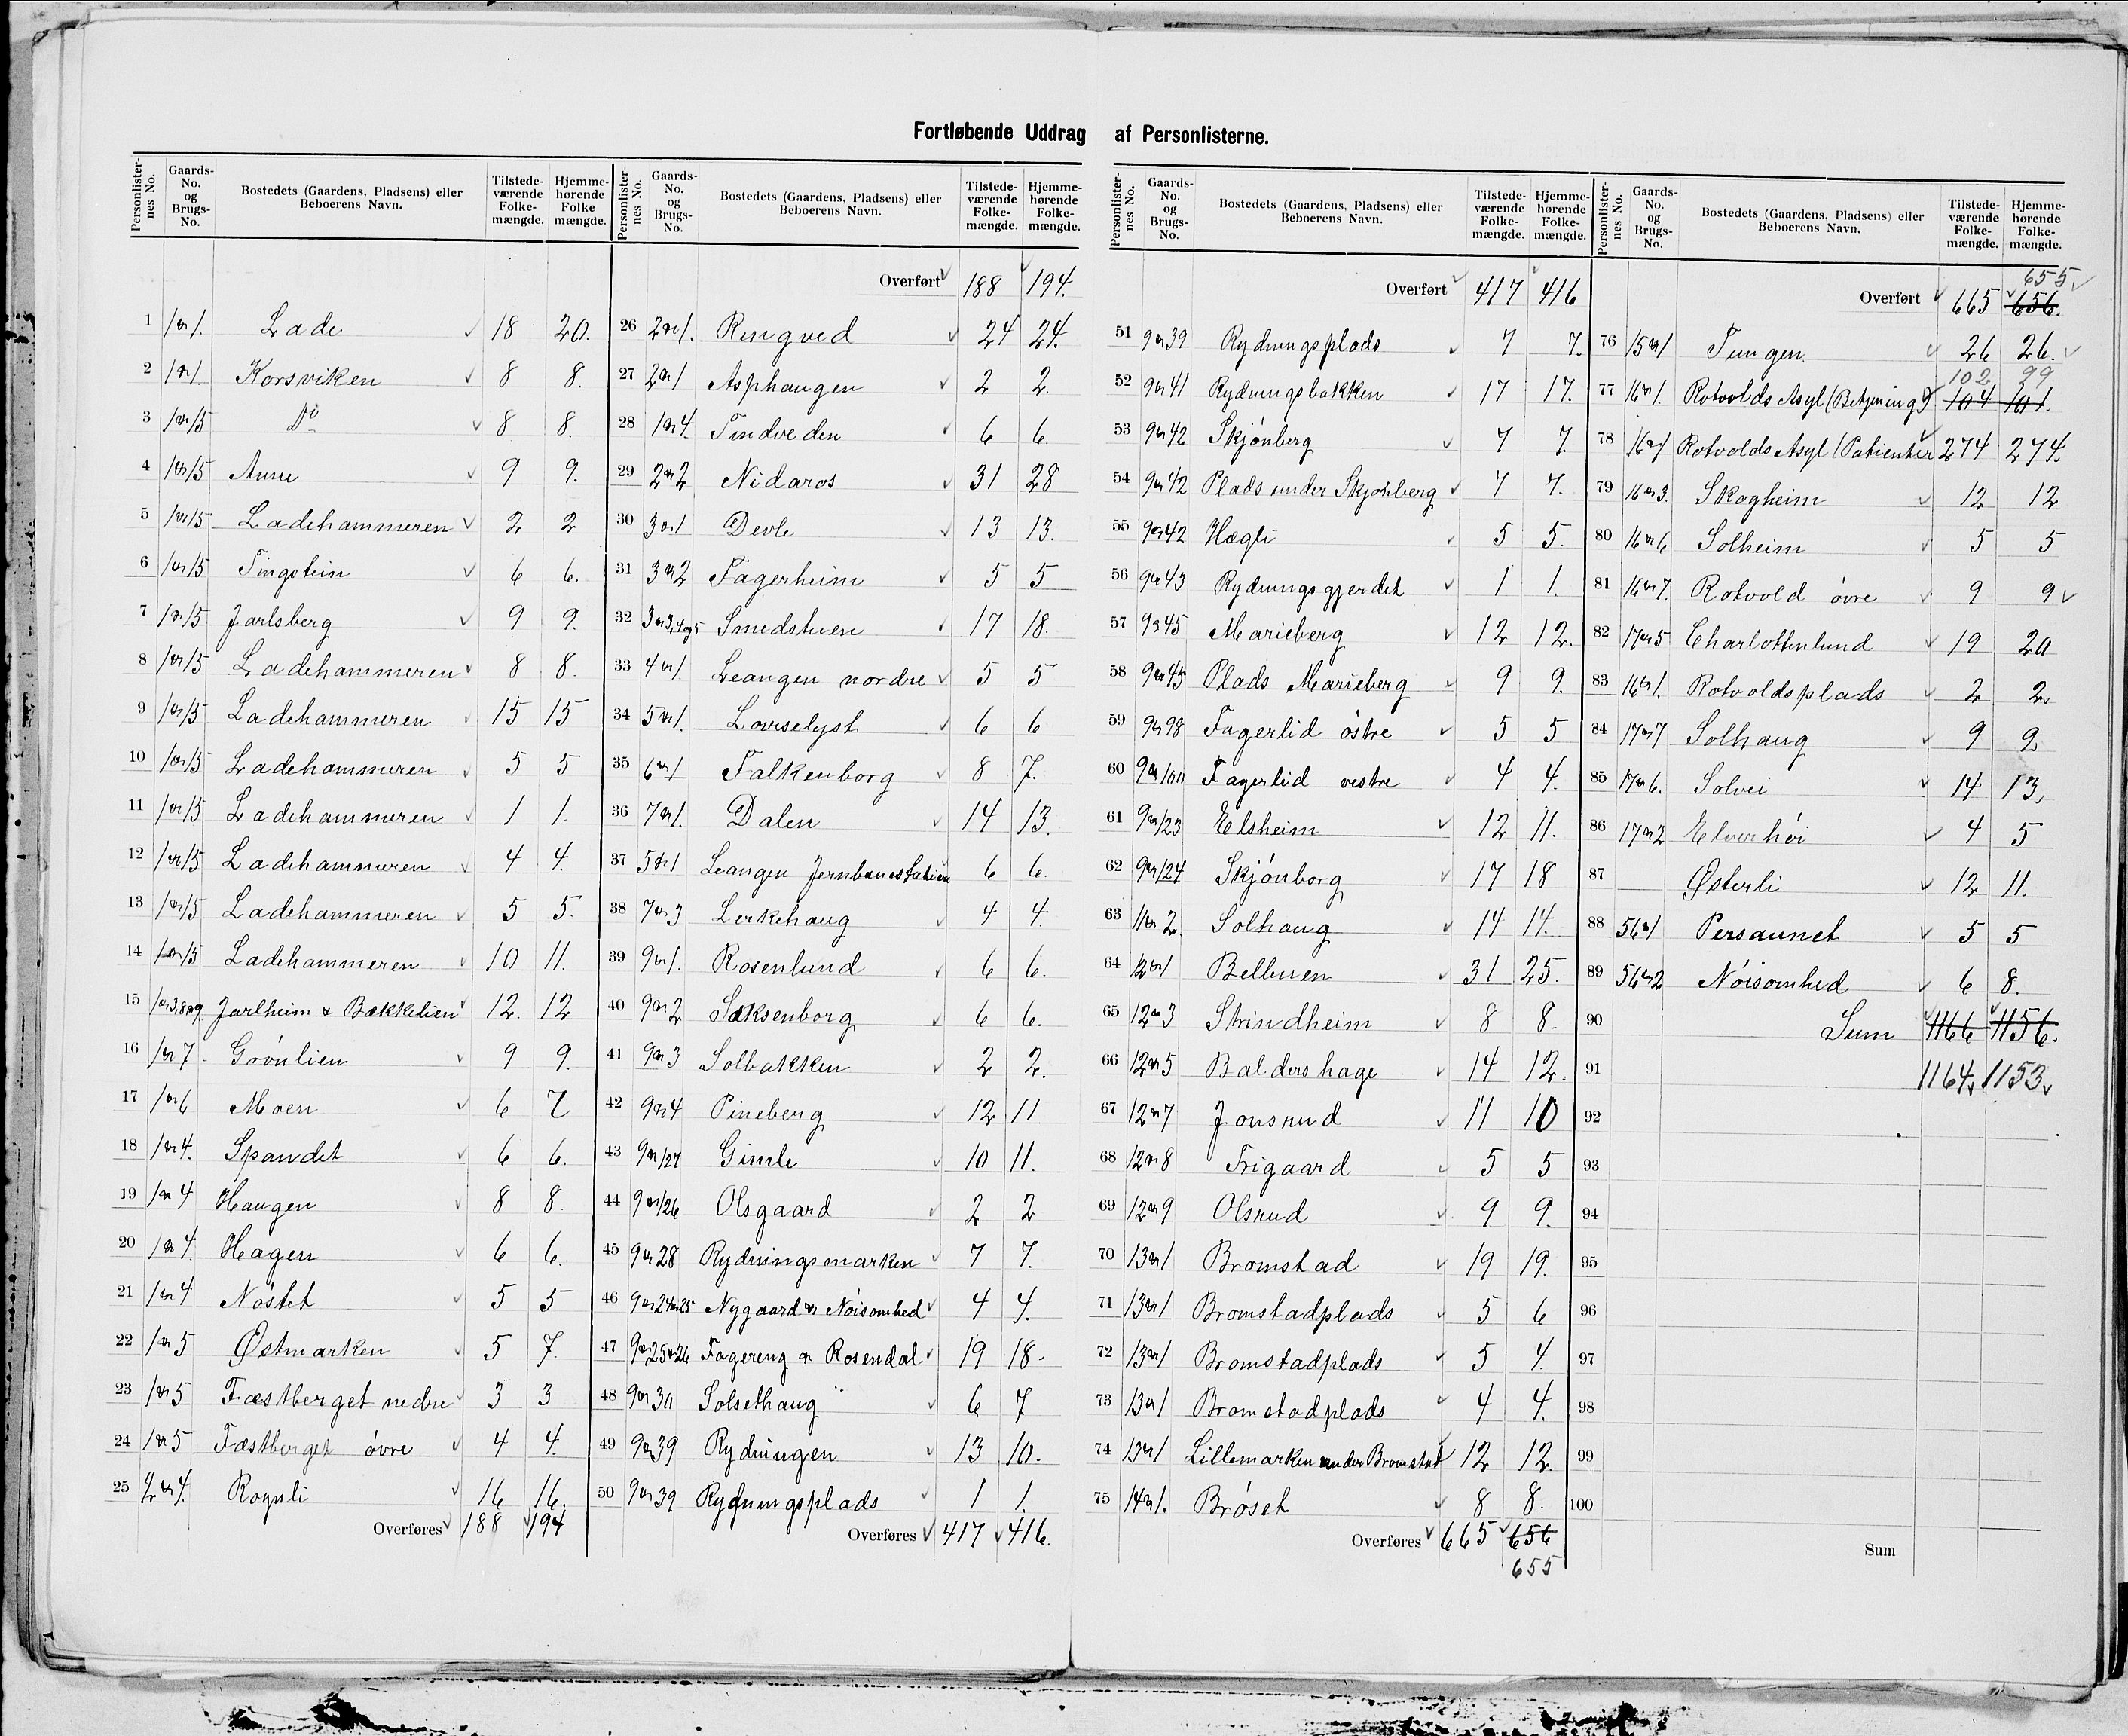 Fortløbende Uddrag af Personlisterne.
Personlisternes No. Gaards-No. og Brugs-No. Bostedets (Gaardens, Pladsens) eller Beboerens Navn. Tilstedeværende Folkemængde. Hjemmehørende Folkemængde.
1 1/1. Lade 18 20.
2 1/1. Korsviken 8 8.
3 1/15 Do 8 8.
4 1/15 Aune 9 9.
5 1/15 Ladehammeren 2 2
6 1/15 Tingstein 6 6.
7 1/15 Jarlsberg 9 9.
8 1/15 Ladehammeren 8 8.
9 1/15 Ladehammeren 15 15
10 1/15 Ladehammeren 5 5
11 1/15 Ladehammeren 1 1.
12 1/15 Ladehammeren 4 4.
13 1/15 Ladehammeren 5 5.
14 1/15 Ladehammeren 10 11.
15 1/3,8,9. Jarlheim & Bakkelien 12. 12
16 1/7 Grønlien 9 9.
17 1/6 Moen 6 7
18 1/4. Spandet 6 6.
19 1/4 Haugen 8 8.
20 1/4. Hagen 6 6.
21 1/4 Nøstet 5 5
22 1/5 Østmarken 5 7.
23 1/5 Fæstberget nedre 3 3
24 1/5 Fæstberget øvre 4 4.
25 Rognli 16 16.
Overføres 188 194
Overført 188 194.
26 2/1. Ringved 24 24.
27 2/1 Asphaugen 2 2.
28 1/4. Tindveden 6 6.
29 2/2 Nidaros 31 28
30 3/1 Devle 13 13.
31 3/2 Fagerheim 5 5
32 3/3,4og5 Smedstuen 17 18.
33 4/1 Leangen nordre 5 5
34 5/1. Lovselyst 6 6
35 6/1 Falkenborg 8 7.
36 7/1. Dalen 14 13.
37 5/1 Leangen Jernbanestation 6 6.
38 7/3 Lerkehaug 4 4.
39 9/1. Rosenlund 6 6.
40 9/2 Saksenborg 6 6.
41 9/3 Solbakken 2 2.
42 9/4 Pineberg 12 11
43 9/27 Gimle 10 11.
44 9/26 Olsgaard 2 2
45 9/28 Rydningsmarken 7 7.
46 9/24&25 Nygaard & Nøisomhed 4 4.
47 9/25&26 Fagereng & Rosendal 19 18.
48 9/30 Solsethaug 6 7
49 9/39 Rydningen 13 10.
50 9/39 Rydningsplads 1 1.
Overføres 417 416.
Overført 417 416
51 9/39 Rydningsplads 7 7.
52 9/41 Rydningsbakken 17 17.
53 9/42 Skjønberg 7 7.
54 9/42 Plads under Skjønberg 7 7.
55 9/42 Hægli 5 5.
56 9/43 Rydningsgjerdet 1 1.
57 9/45 Marieberg 12 12.
58 9/45 Plads Marieberg 9 9.
59 9/98 Fagerlid østre 5 5
60 9/100 Fagerlid vestre 4 4.
61 9/123 Elsheim 12 11.
62 9/124 Skjønborg 17 18
63 11/2. Solhaug 14 14.
64 12/1 Belbuen 31 25.
65 12/3 Strindheim 8 8.
66 12/5 Baldershage 14 12.
67 12/7 Jonsrud 11 10
68 12/8 Trigaard 5 5
69 12/9 Olsrud 9 9.
70 13/1 Bromstad 19 19.
71 13/1 Bromstadplads 5 6
72 13/1 Bromstadplads 5 4.
73 13/1 Bromstadplads 4 4.
74 13/1 Lillemarken under Bromstad 12 12.
75 14/1. Brøset 8 8.
Overføres 665 656
655
655
Overført 665 656.
76 15/1 Tungen 26 26.
102 99
77 16/1. Rotvolds Asyl (Betjening) 104 101.
78 16/1 Rotvolds Asyl (Patienter 274 274.
79 16/3. Skogheim 12 12
80 16/6 Solheim 5 5
81 16/7. Rotvold øvre 9 9
82 17/5 Charlottenlund 19 20
83 16/1. Rotvoldsplads 2 2.
84 17/7 Solhaug 9 9
85 17/6. Solvei 14 13.
86 17/2 Elverhøi 4 5
87 Østerli 12 11.
88 56/1 Persaunet 5 5
89 56/2 Nøisomhed 6 8.
90 Sum 1166 1156.
91 1164 1153
92
93
94
95
96
97
98
99
100
Sum